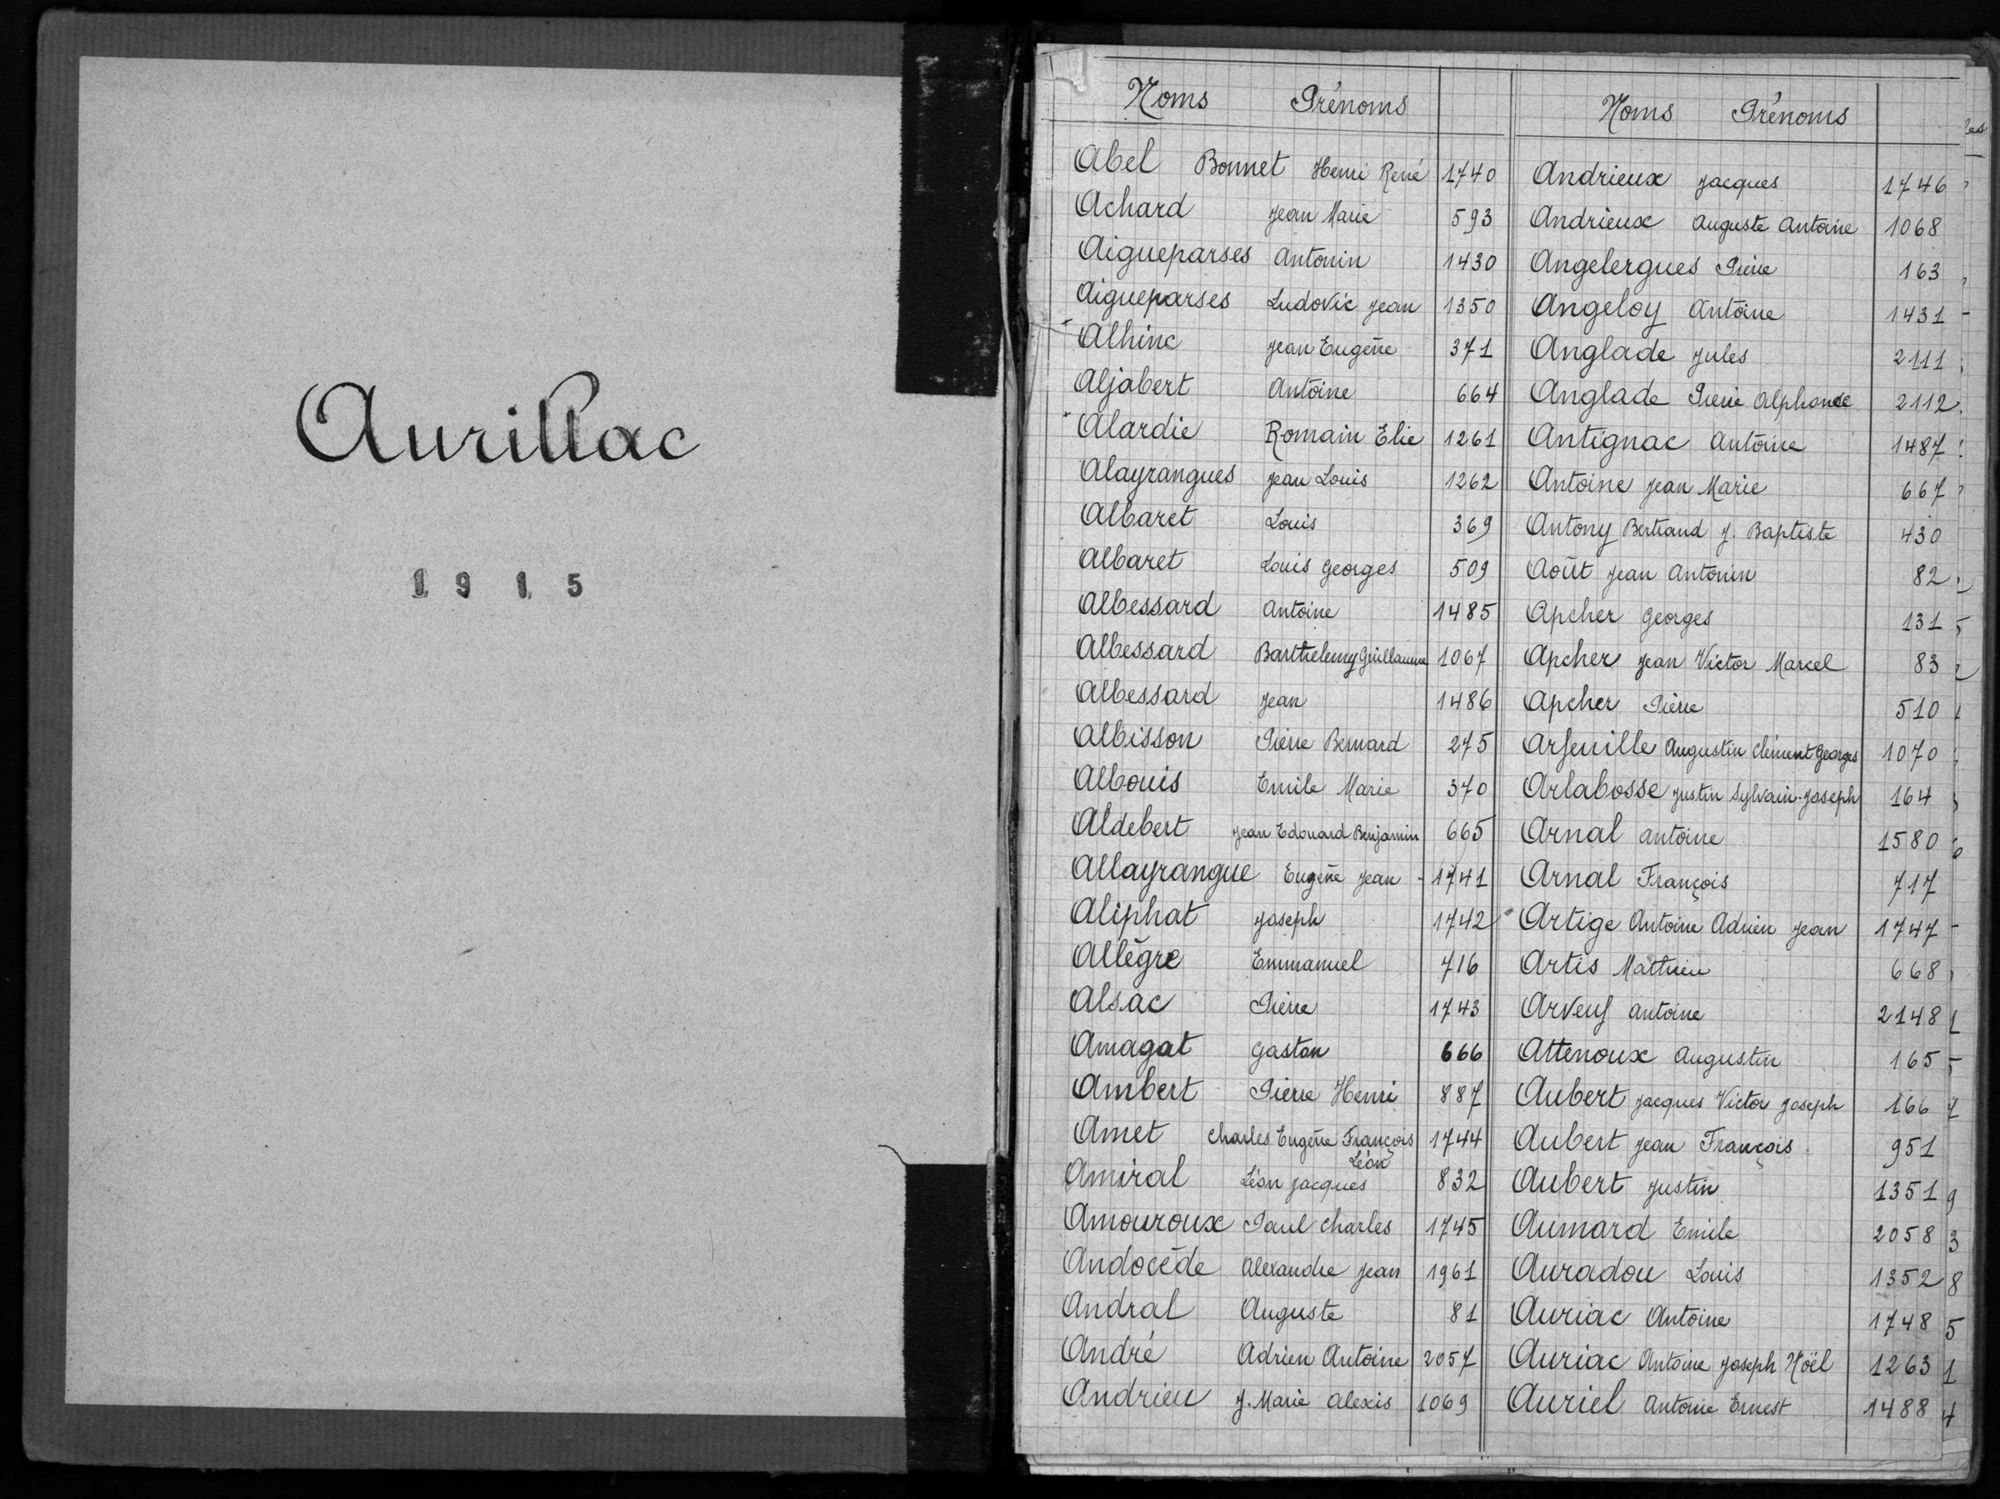 Aurillac
1915
Noms Prénoms
Abel Bonnet Henri René 1740
Achard Jean Marie 593
Aigueparses Antonin 1430
Aigueparses Ludovic Jean 1350
Alhinc Jean Eugène 371
Aljabert Antoine 664
Alardie Romain Elie 1261
Alayrangues Jean Louis 1262
Albaret Louis 369
Albaret Louis Georges 509
Albessard Antoine 1485
Albessard Barthelemy Guillaume 1067
Albessard Jean 1486
Albisson Pierre Bernard 275
Albouis Emile Marie 370
Aldebert Jean Edouard Benjamin 665
Allayrangue Eugène Jean - 1741
Aliphat Joseph 1742
Allègre Emmanuel 716
Alsac Pierre 1743
Amagat Gaston 666
Ambert Pierre Henri 887
Amet Charles Eugène François 1744
Léon
Amiral Léon Jacques 832
Amouroux Paul Charles 1745
Andocède Alexandre Jean 1961
Andral Auguste 81
André Adrien Antoine 2057
Andrieu J. Marie Alexis 1069
Noms Prénoms
Andrieux Jacques 1746
Andrieux Auguste Antoine 1068
Angelergues Pierre 163
Angeloy Antoine 1431
Anglade Jules 2111
Anglade Pierre Alphonse 2112
Antignac Antoine 1487
Antoine Jean Marie 667
Antony Bertrand J. Baptiste 430
Août Jean Antonin 82
Apcher Georges 131
Apcher Jean Victor Marcel 83
Apcher Pierre 510
Arfeuille Augustin Clément Georges 1070
Arlabosse Justin Sylvain-Joseph 164
Arnal Antoine 1580
Arnal François 717
Artige Antoine Adrien Jean 1747
Artis Mathieu 668
Arveuf Antoine 2148
Attenoux Augustin 165
Aubert Jacques Victor Joseph 166
Aubert Jean François 951
Aubert Justin 1351
Aumard Emile 2058
Auradou Louis 1352
Auriac Antoine 1748
Auriac Antoine Joseph Noël 1263
Auriel Antoine Ernest 1488